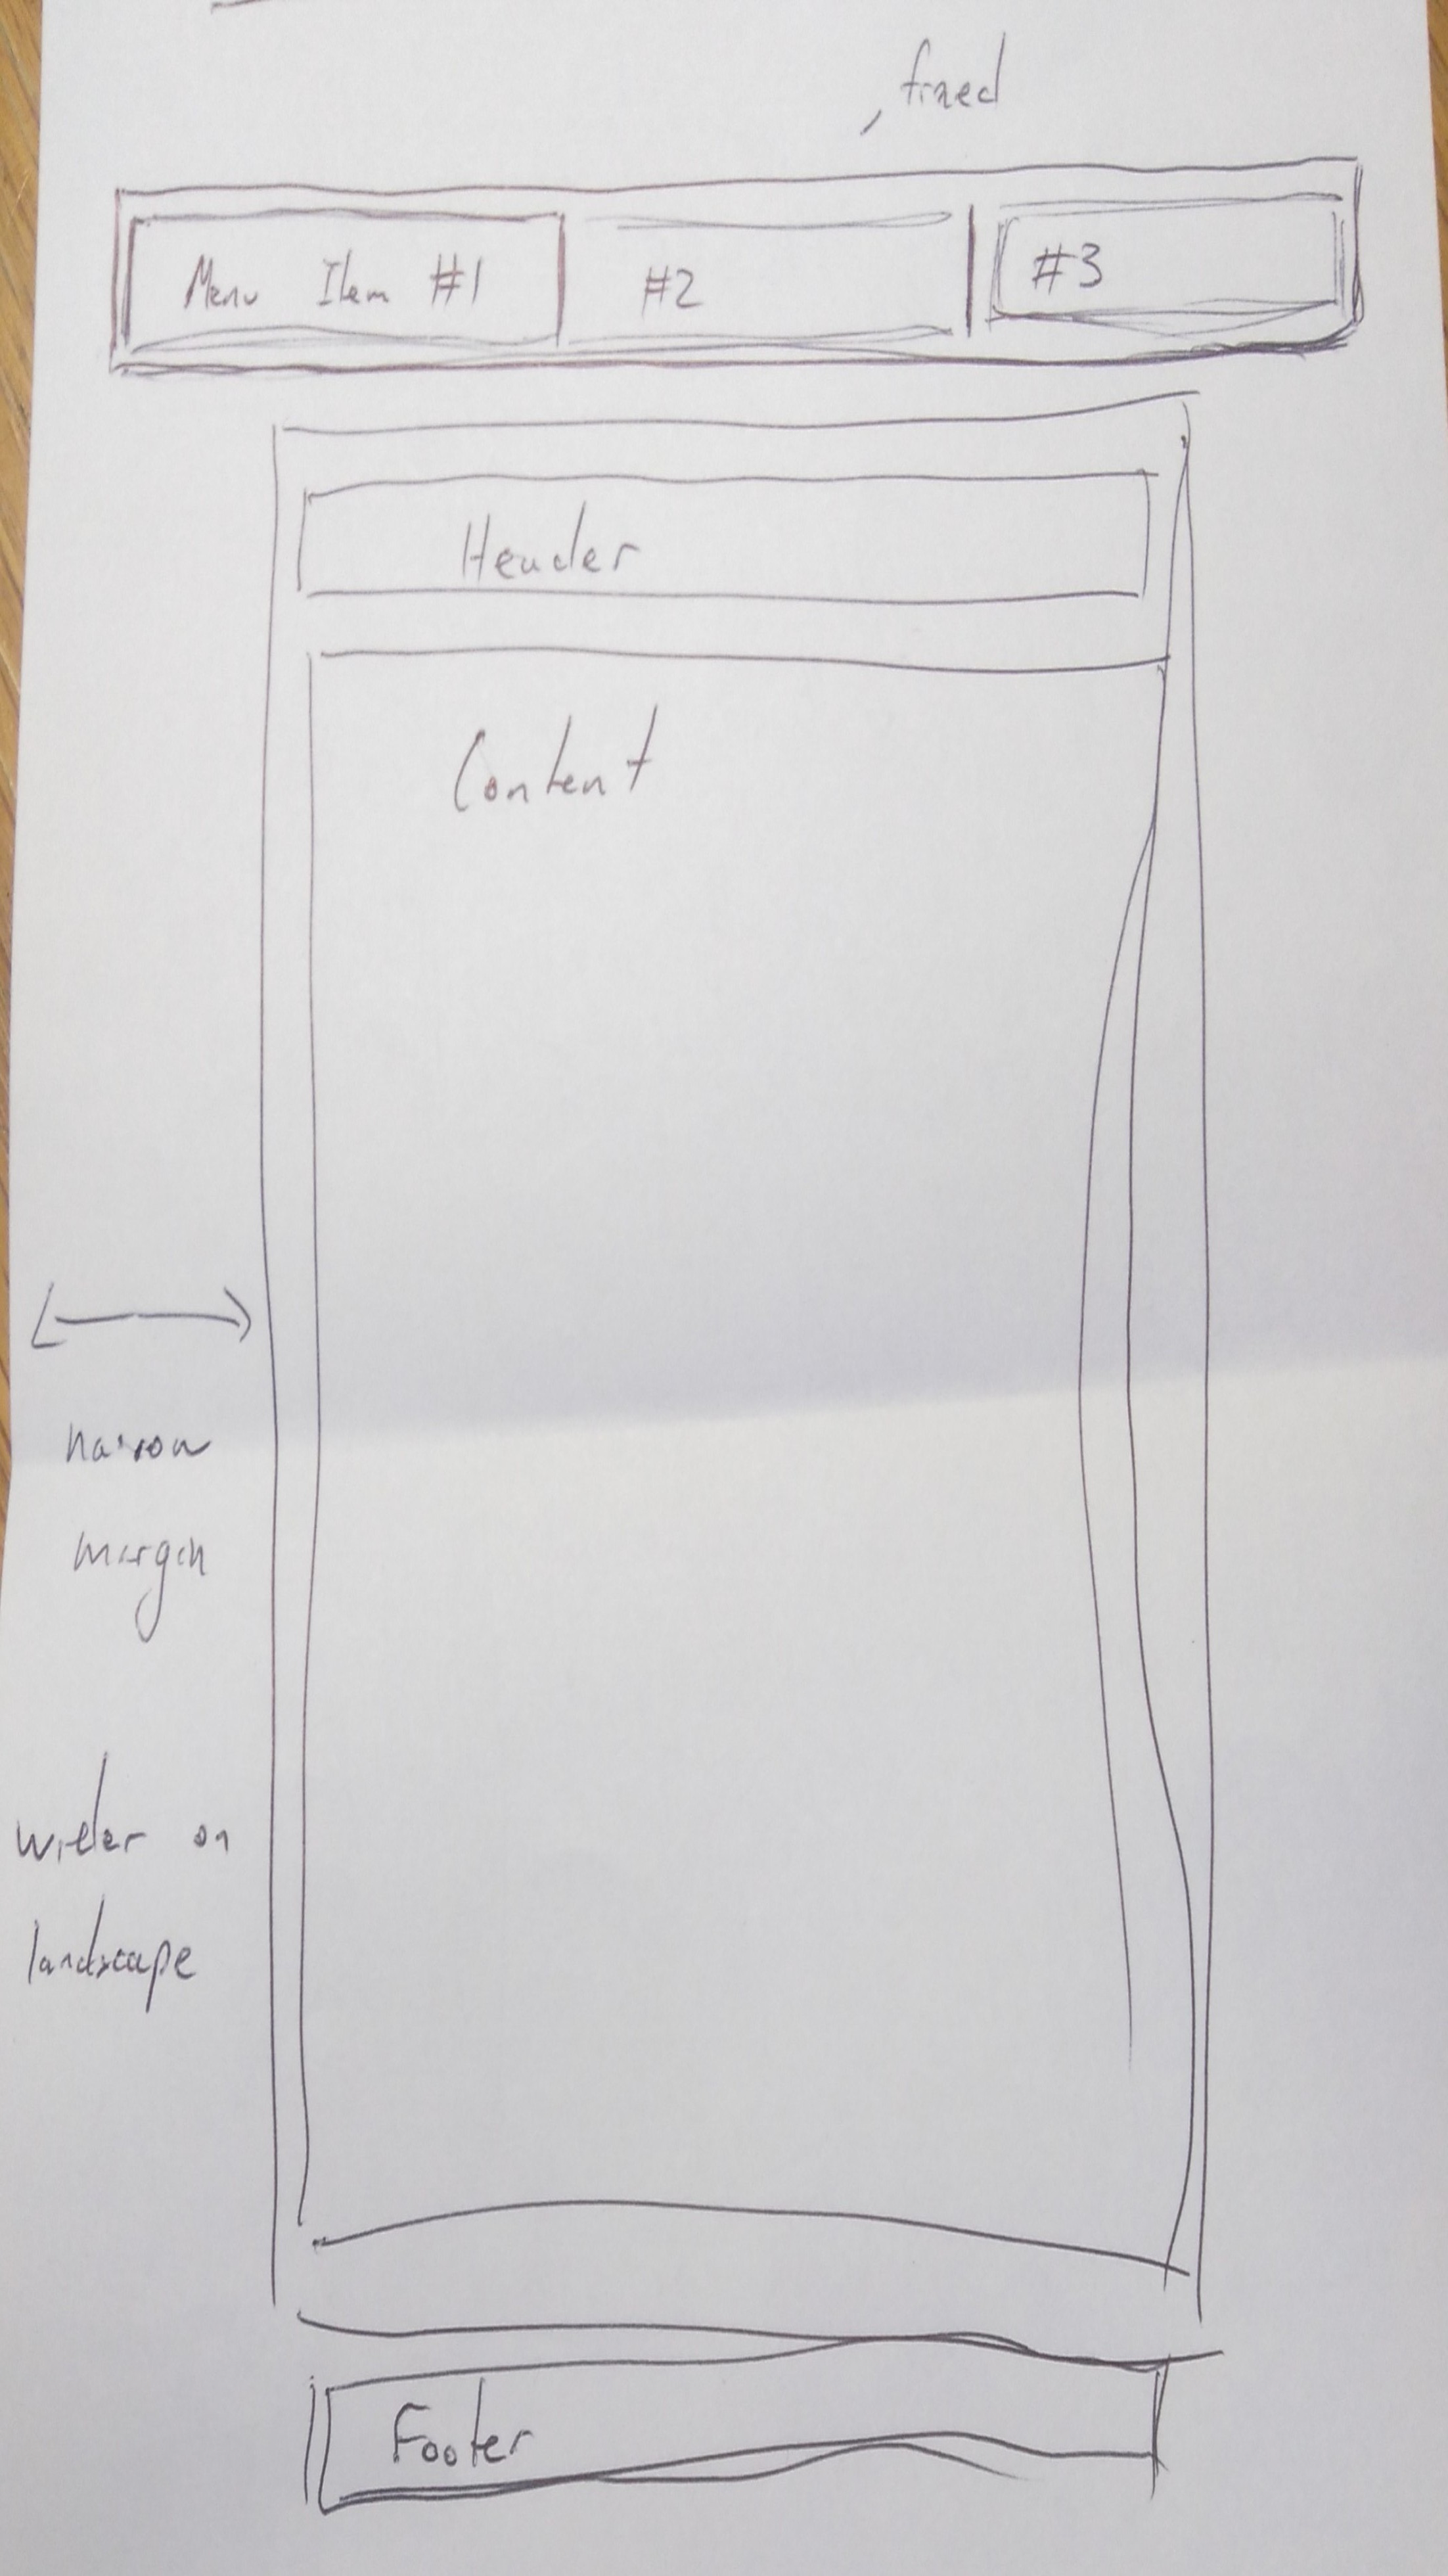 , fixed
Menu Item #1 #2 #3
Header
Content
narrow
margin
wider on
landscape
Footer